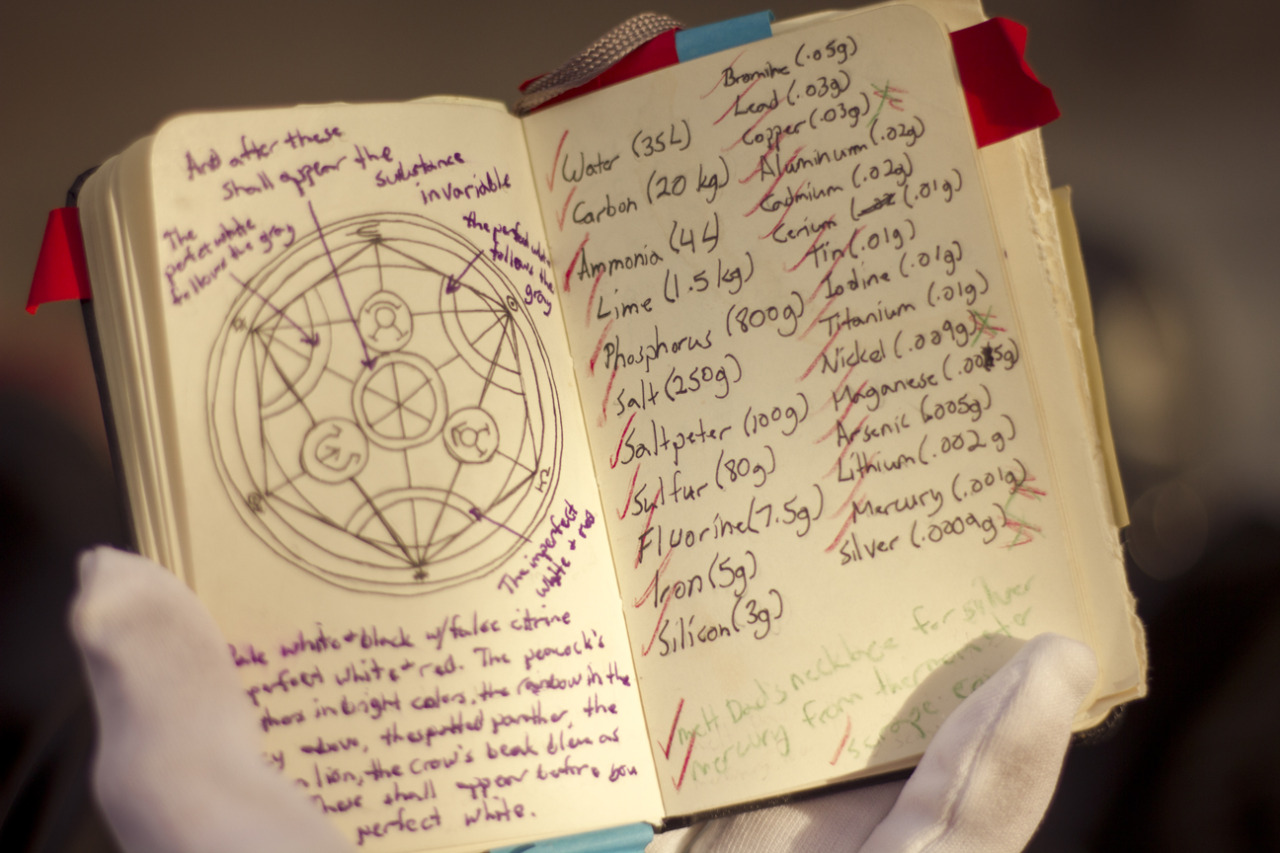 And after these
shall appear the
substance
invariable
The
perfect white
follows the gray
the perfect
follows the
gray
The imperfect
white + red
white + black w/false citrine
perfect white + red. The peacock's
in bright colors, the rainbow in the
above, the spotted panther, the
lion, the crow's beak blue as
These shall appear before you
perfect white.
Water (35L)
Carbon (20 kg)
Ammonia (4L)
Lime (1.5 kg)
Phosphorus (800g)
Salt (250g)
Saltpeter (100g)
Sulfur (80g)
Fluorine (7.5g)
Iron (5g)
Silicon (3g)
Bromine (.05g)
Lead (.03g)
Copper (.03g)
Aluminum (.02g)
Cadmium (.02g)
Cerium (.01g)
Tin (.01g)
Iodine (.01g)
Titanium (.01g)
Nickel (.009g)
Maganese
Arsenic (.005g)
Lithium (.002g)
Mercury (.001g)
Silver (.0009g)
melt Dad's necklace for silver
mercury from thermometer
scrape